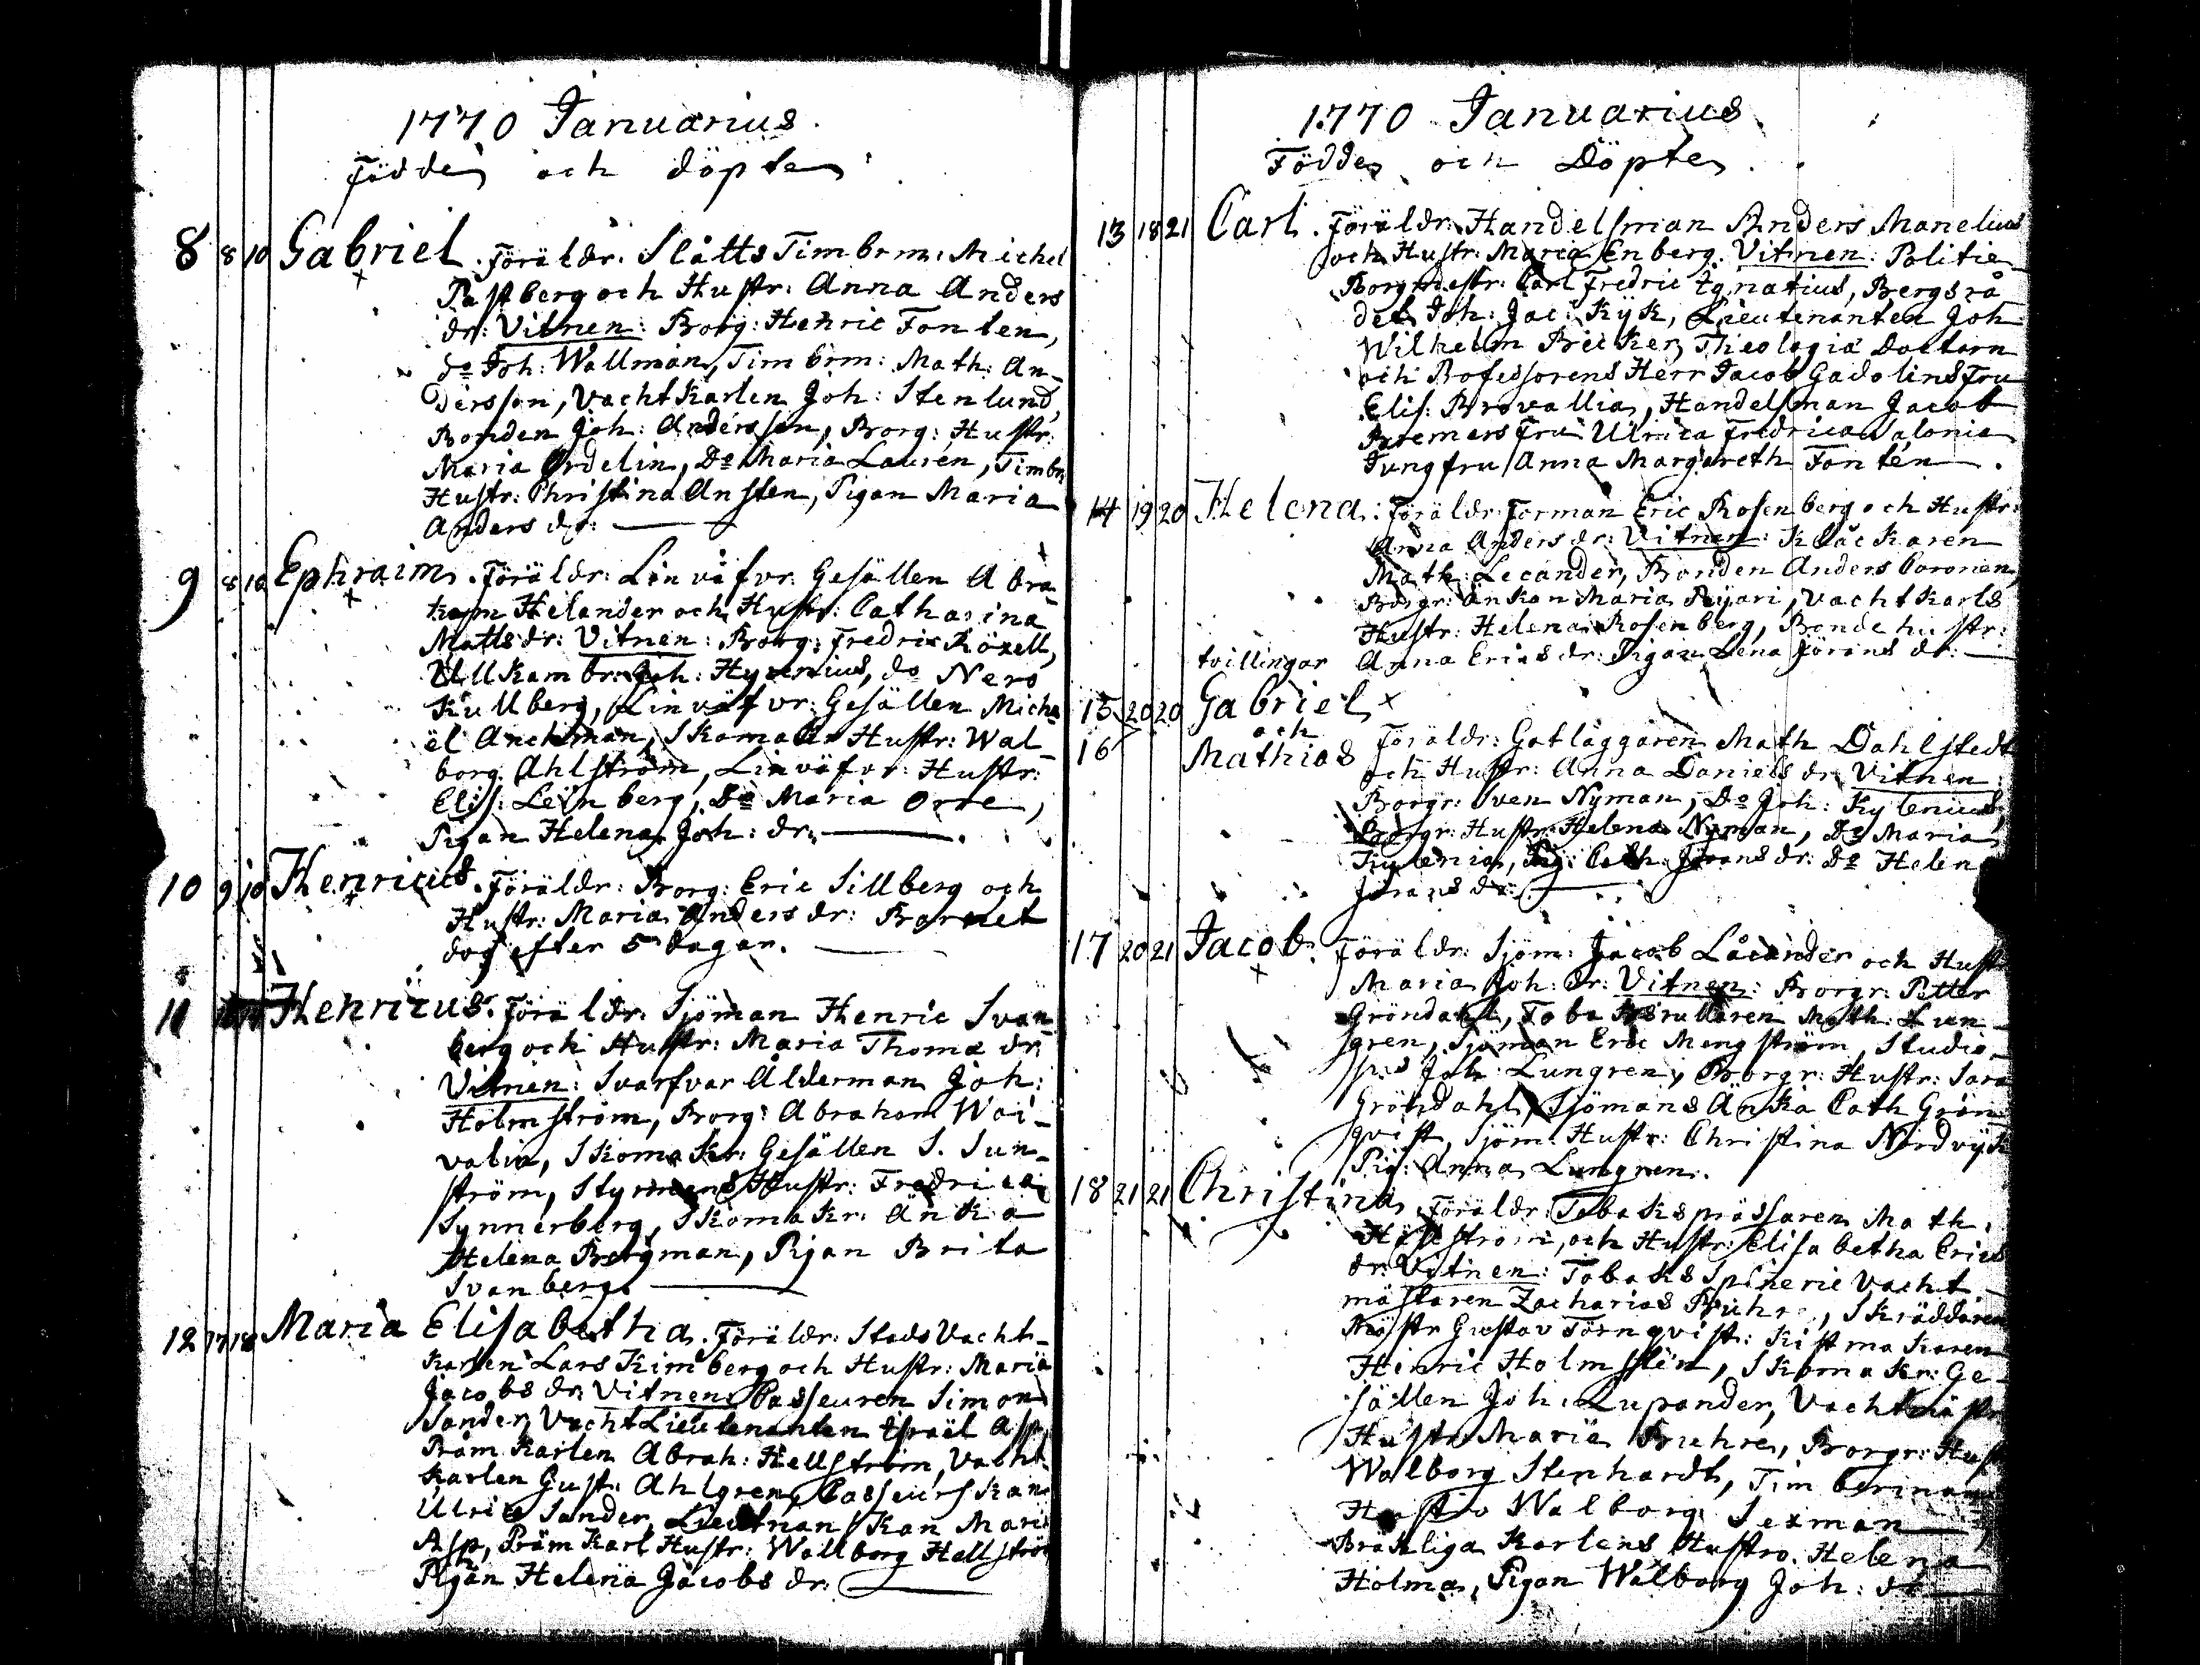 1770 Januarius.
Födde och döpte
8 8 10 Gabriel. Föräldr. Slåtts Timbrm: Michel
Pastberg och Hustr: Anna Anders
dr: Vitnen: Borg: Henric Fonten,
do Joh: Wallman, Timbrm: Math: An-
dersson, Vachtkarlen Joh: Stenlund,
Bonden Joh: Andersson, Borg: Hustr:
Maria Ordelin, Do Maria Lauren, Timbr
Hustr: Christina Ansten, Pigan Maria
Anders dr:
9 8 10 Ephraim. Föräldr: Linväfvr: Gesällen Abra-
ham Helander och Hustr: Catharina
Matts dr: Vitnen: Borg: Fredric Röxell,
Ullkambr: Joh: Hyrenius, do Nero
Kullberg, Linväfvr: Gesällen Micha
ël Anckman, Skomakr Hustr: Wal-
borg Ahlström, Linväfvr: Hustr:
Elis: Leinberg, Do Maria Orre,
Pigan Helena Joh: dr:
10 9 10 Henricus. Föräldr: Borg: Eric Sillberg och
Hustr: Maria Anders dr: Barnet
dog efter 5 dagar.
11 Henricus. Föräldr. Sjöman Henric Svan-
berg och Hustr: Maria Thomæ dr:
Vitnen: Svarfvar Ålderman Joh:
Holmström, Borg: Abraham Wai-
valin, Skomakr: Gesällen S. Sun-
ström, Styrmans Hustr: Fredrica
Synnerberg, Skomakr: Änka
Helena Bergman, Pigan Brita
Svanberg.
12 17 18 Maria Elisabetha. Föräldr: Stads Vacht-
karlen Lars Kimberg och Hustr: Maria
Jacobs dr: Vitnen: Casseuren Simon
Sander, Vacht Lieutenanten Israël Asp,
Pråm Karlen Abrah: Hellström, Vacht-
karlen Gust: Ahlgren, Casseurskan
Ulrica Sander, Lieutnanskan Maria
Asp, Pråm Karl Hustr: Wallborg Hellström
Pigan Helena Jacobs dr:
1770 Januarius
Födde och Döpte
13 18 21 Carl. Föräldr: Handelsman Anders Manelius
och Hustr: Maria Enberg. Vitnen: Politie
Borgmestr: Carl Fredric Ignatius, Bergsrå
det Joh: Jac: Kijk, Lieutenanten Joh
Wilhelm Bricker, Theologiæ Doctorn
och Professorens Herr Jacob Gadolins Fru
Elis: Brovallia, Handelsman Jacob
Bremers Fru Ulrica Fredrica Salonia
Jungfru Anna Margareth Fontén.
14 19 20 Helena. Föräldr: Forman Eric Rosenberg och Hustr:
Anna Anders dr: Vitnen: Klåckaren
Math: Lecander, Bonden Anders
Borgr: änkan Maria, Vachtkarls
Hustr: Helena Rosenberg, Bonde hustr:
tvillingar Anna Erics dr: Pigan Lena Jörans dr:
15 20 20 Gabriel
och
16 Mathias Föräldr: Gatläggaren Math Dahlstedt
och Hustr: Anna Daniels dr: Vitnen:
Borgr: Sven Nyman, Do Joh: Kylenius,
Borgr: Hustr: Helena Nyman, Do Maria
Kylenia, Pig: Cath: Jörans dr: Do Helen
Jörans dr:
17 20 21 Jacob. Föräldr: Sjöm: Jacob Låcander och Hust
Maria Joh: dr: Vitnen: Borgr: Petter
Gröndahl, Tobaksrullaren Math: Lun-
gren, Sjöman Eric Mengström, Studio-
sus Joh: Lungren, Borgr: Hustr: Sara
Gröndahl, Sjömans Änka Cath Grön-
qvist, Sjöm: Hustr: Christina Nordvijk
Pig: Anna Lungren.
18 21 21 Christina. Föräldr: Tobakspråssaren Math:
Höckström, och Hustr: Elisabetha Erics
dr: Vitnen: Tobaks Spinerie Vacht-
mästaren Zacharias Bruhre, Skräddaren
Mästr Gustav Törnqvist: Kistmakaren
Henric Holmstén, Skomakr: Ge-
sällen Joh: Lupander, Vachtmästr
Hustr: Maria Bruhre, Borgr: Hust
Walborg Stenhardt, Timberman
Hustr Walborg Sexman
Bräkliga Karlens Hustro. Helena
Holma, Pigan Walborg Joh: dr